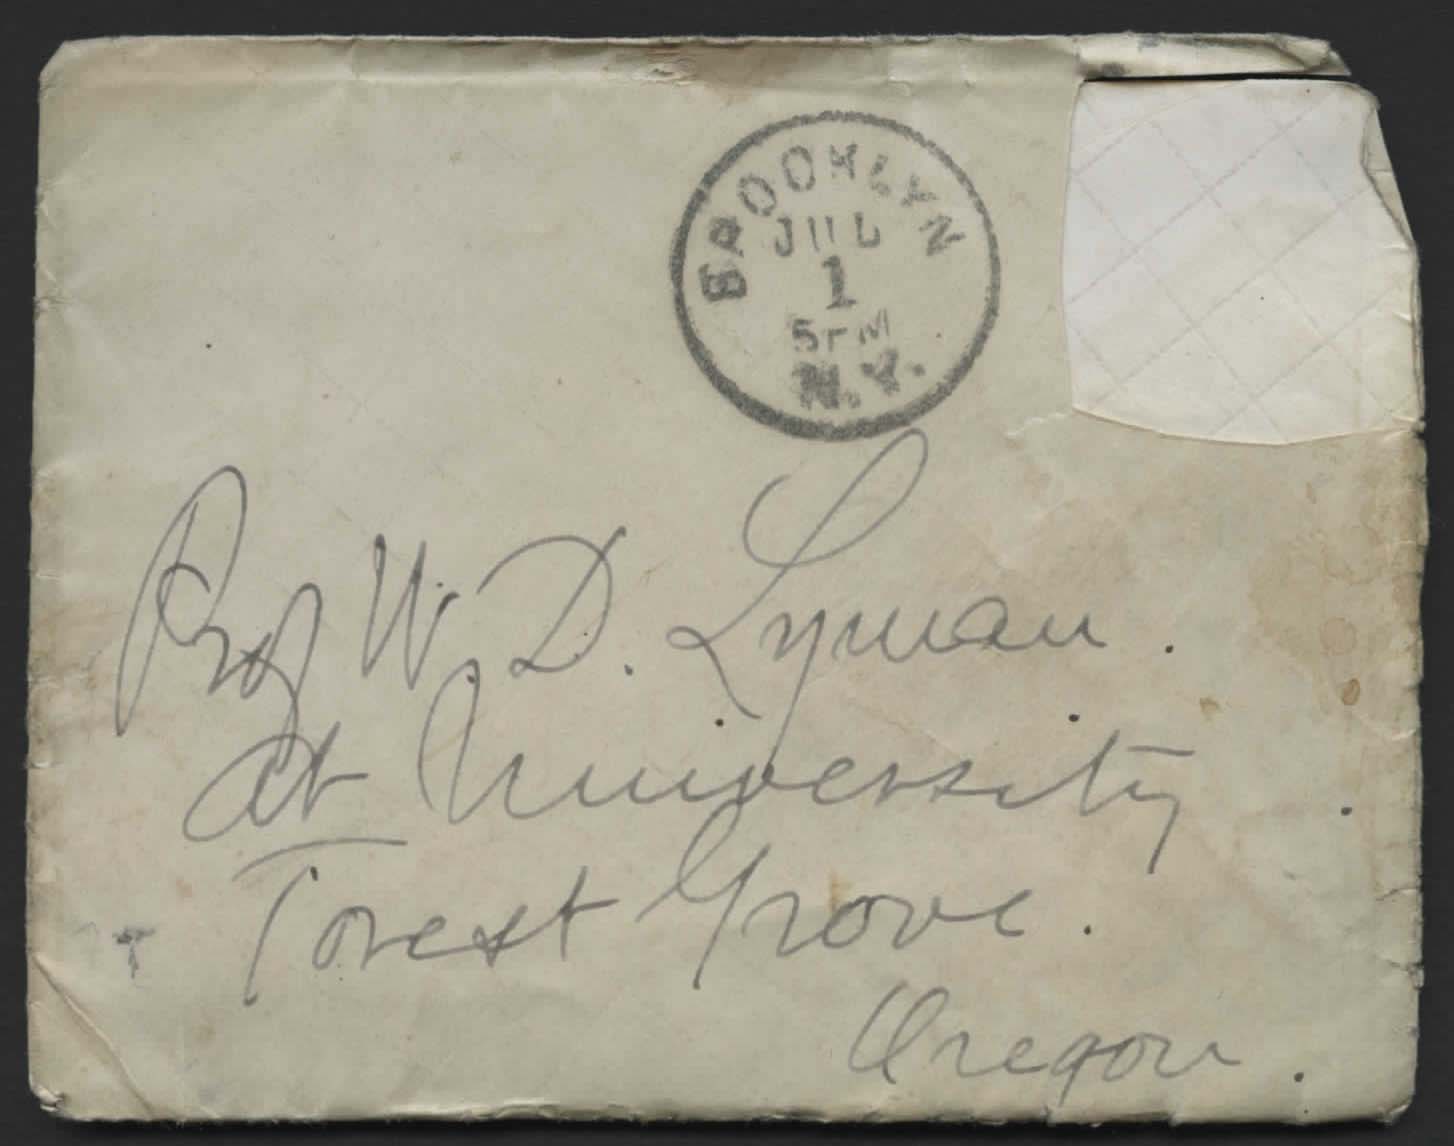 BROOKLYN
JUL
1
5 PM
N.Y.
Prof W. D. Lyman.
at University
Forest Grove.
Oregon.